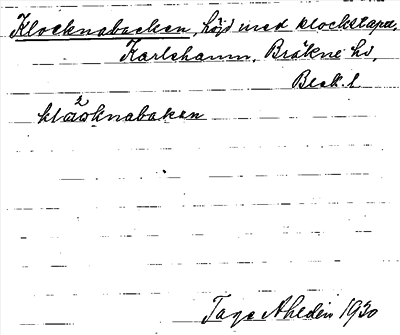 Klocknabacken, höjd med klockstapel,
Karlshamn, Bräkne hd,
Blek. l
2
klååknabaken
Tage Ahldén 1930